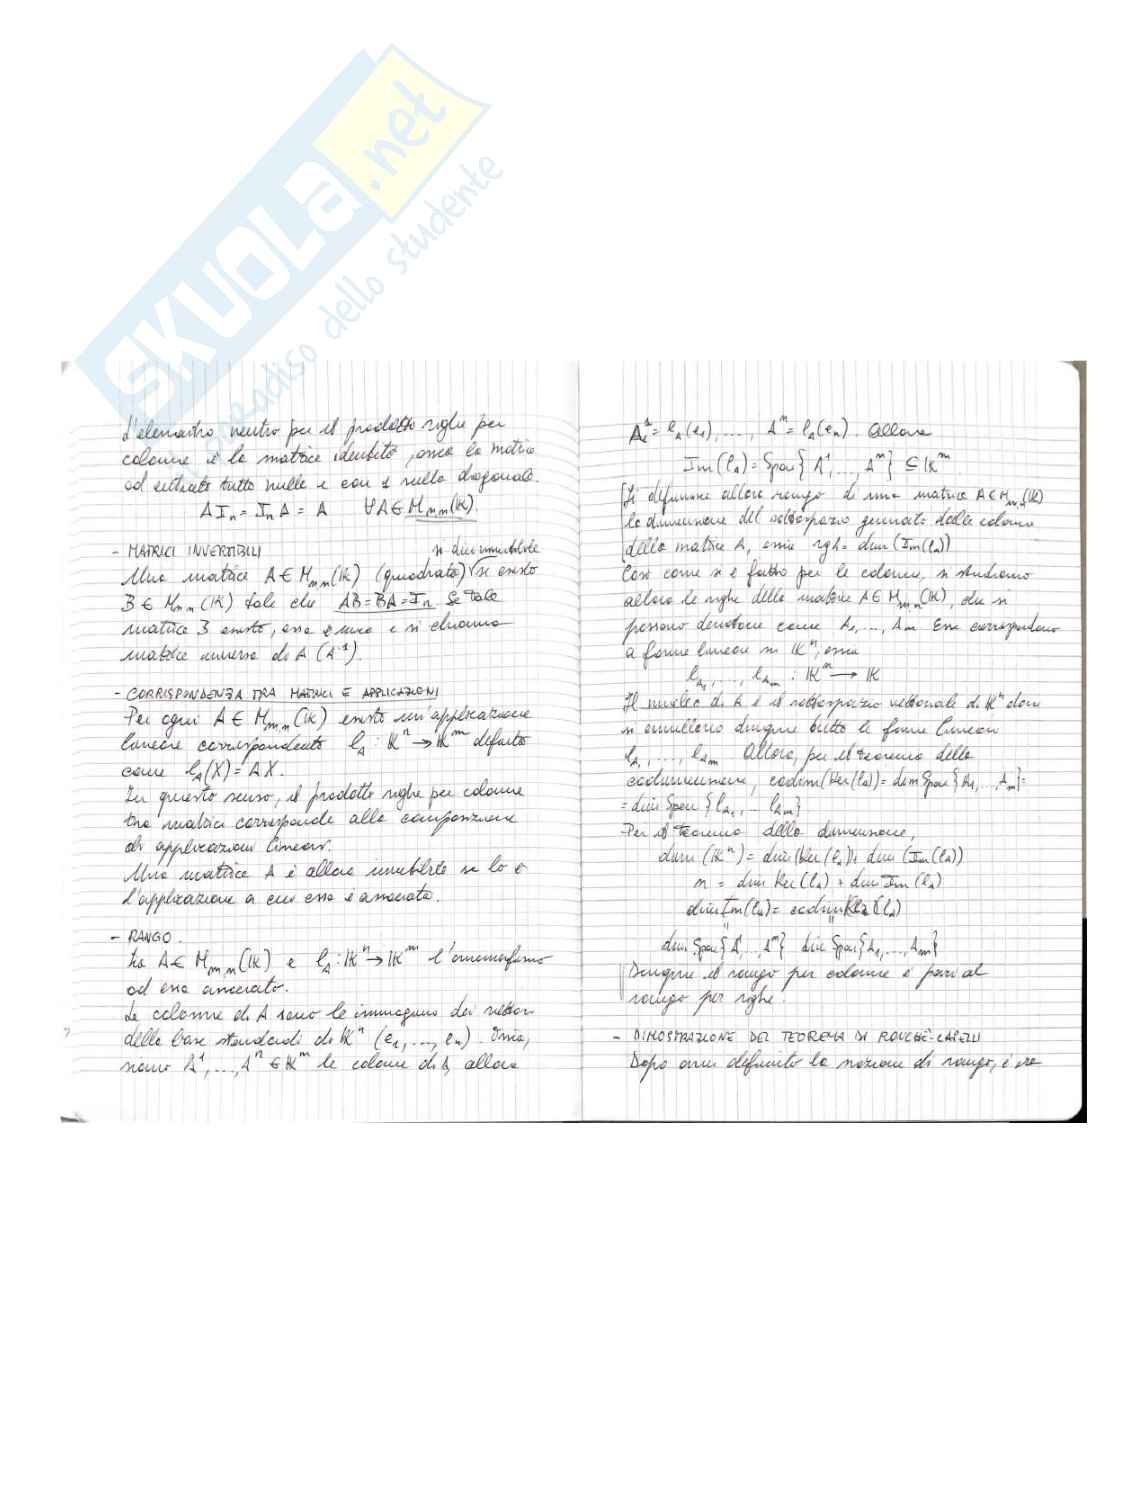 SKUOLA.net
paradiso dello studente
L'elemento neutro per il prodotto righe per
colonne è la matrice identità, ossia la matrice
ad entrate tutte nulle e con 1 sulla diagonale.
A In = In A = A ∀A ∈ Mm,n(K).
- MATRICI INVERTIBILI
si dice invertibile
Una matrice A ∈ Mm,n(K) (quadrata) √ se esiste
B ∈ Mm,n(K) tale che AB = BA = In. Se tale
matrice B esiste, essa è unica e si chiama
matrice inversa di A (A⁻¹).
- CORRISPONDENZA TRA MATRICI E APPLICAZIONI
Per ogni A ∈ Mm,n(K) esiste un'applicazione
lineare corrispondente lA : Kⁿ → Kᵐ definita
come lA(X) = AX.
In questo senso, il prodotto righe per colonne
tra matrici corrisponde alla composizione
di applicazioni lineari.
Una matrice A è allora invertibile se lo è
l'applicazione a cui essa è associata.
- RANGO.
A ∈ Mm,n(K) e lA : Kⁿ → Kᵐ l'omomorfismo
ad essa associato.
Le colonne di A sono le immagini dei vettori
della base standard di Kⁿ (e1, ..., en). Ossia,
siano A¹, ..., Aⁿ ∈ Kᵐ le colonne di A, allora
A¹ = lA(e1), ..., Aⁿ = lA(en). Allora
Im(lA) = Span{A¹, ..., Aⁿ} ⊆ Kᵐ
Si definisce allora rango di una matrice A ∈ Mm,n(K)
la dimensione del sottospazio generato dalle colonne
della matrice A, ossia rgA = dim(Im(lA))
Così come si è fatto per le colonne, si studiano
allora le righe della matrice A ∈ Mm,n(K), che si
possono denotare come A1, ..., Am. Esse corrispondono
a forme lineari su Kⁿ, ossia
lA1, ..., lAm : Kⁿ → K
Il nucleo di A è il sottospazio vettoriale di Kⁿ dove
si annullano dunque tutte le forme lineari
lA1, ..., lAm. Allora, per il teorema della
codimensione, codim(Ker(lA)) = dim Span{A1, ..., Am} =
= dim Span{lA1, ... lAm}
Per il teorema della dimensione,
dim(Kⁿ) = dim(Ker(lA)) + dim(Im(lA))
n = dim Ker(lA) + dim Im(lA)
dim Im(lA) = codim Ker(lA)
= =
dim Span{A¹, ..., Aⁿ} dim Span{A1, ..., Am}
Dunque il rango per colonne è pari al
rango per righe.
- DIMOSTRAZIONE DEL TEOREMA DI ROUCHÉ-CAPELLI
Dopo aver definito la nozione di rango, è